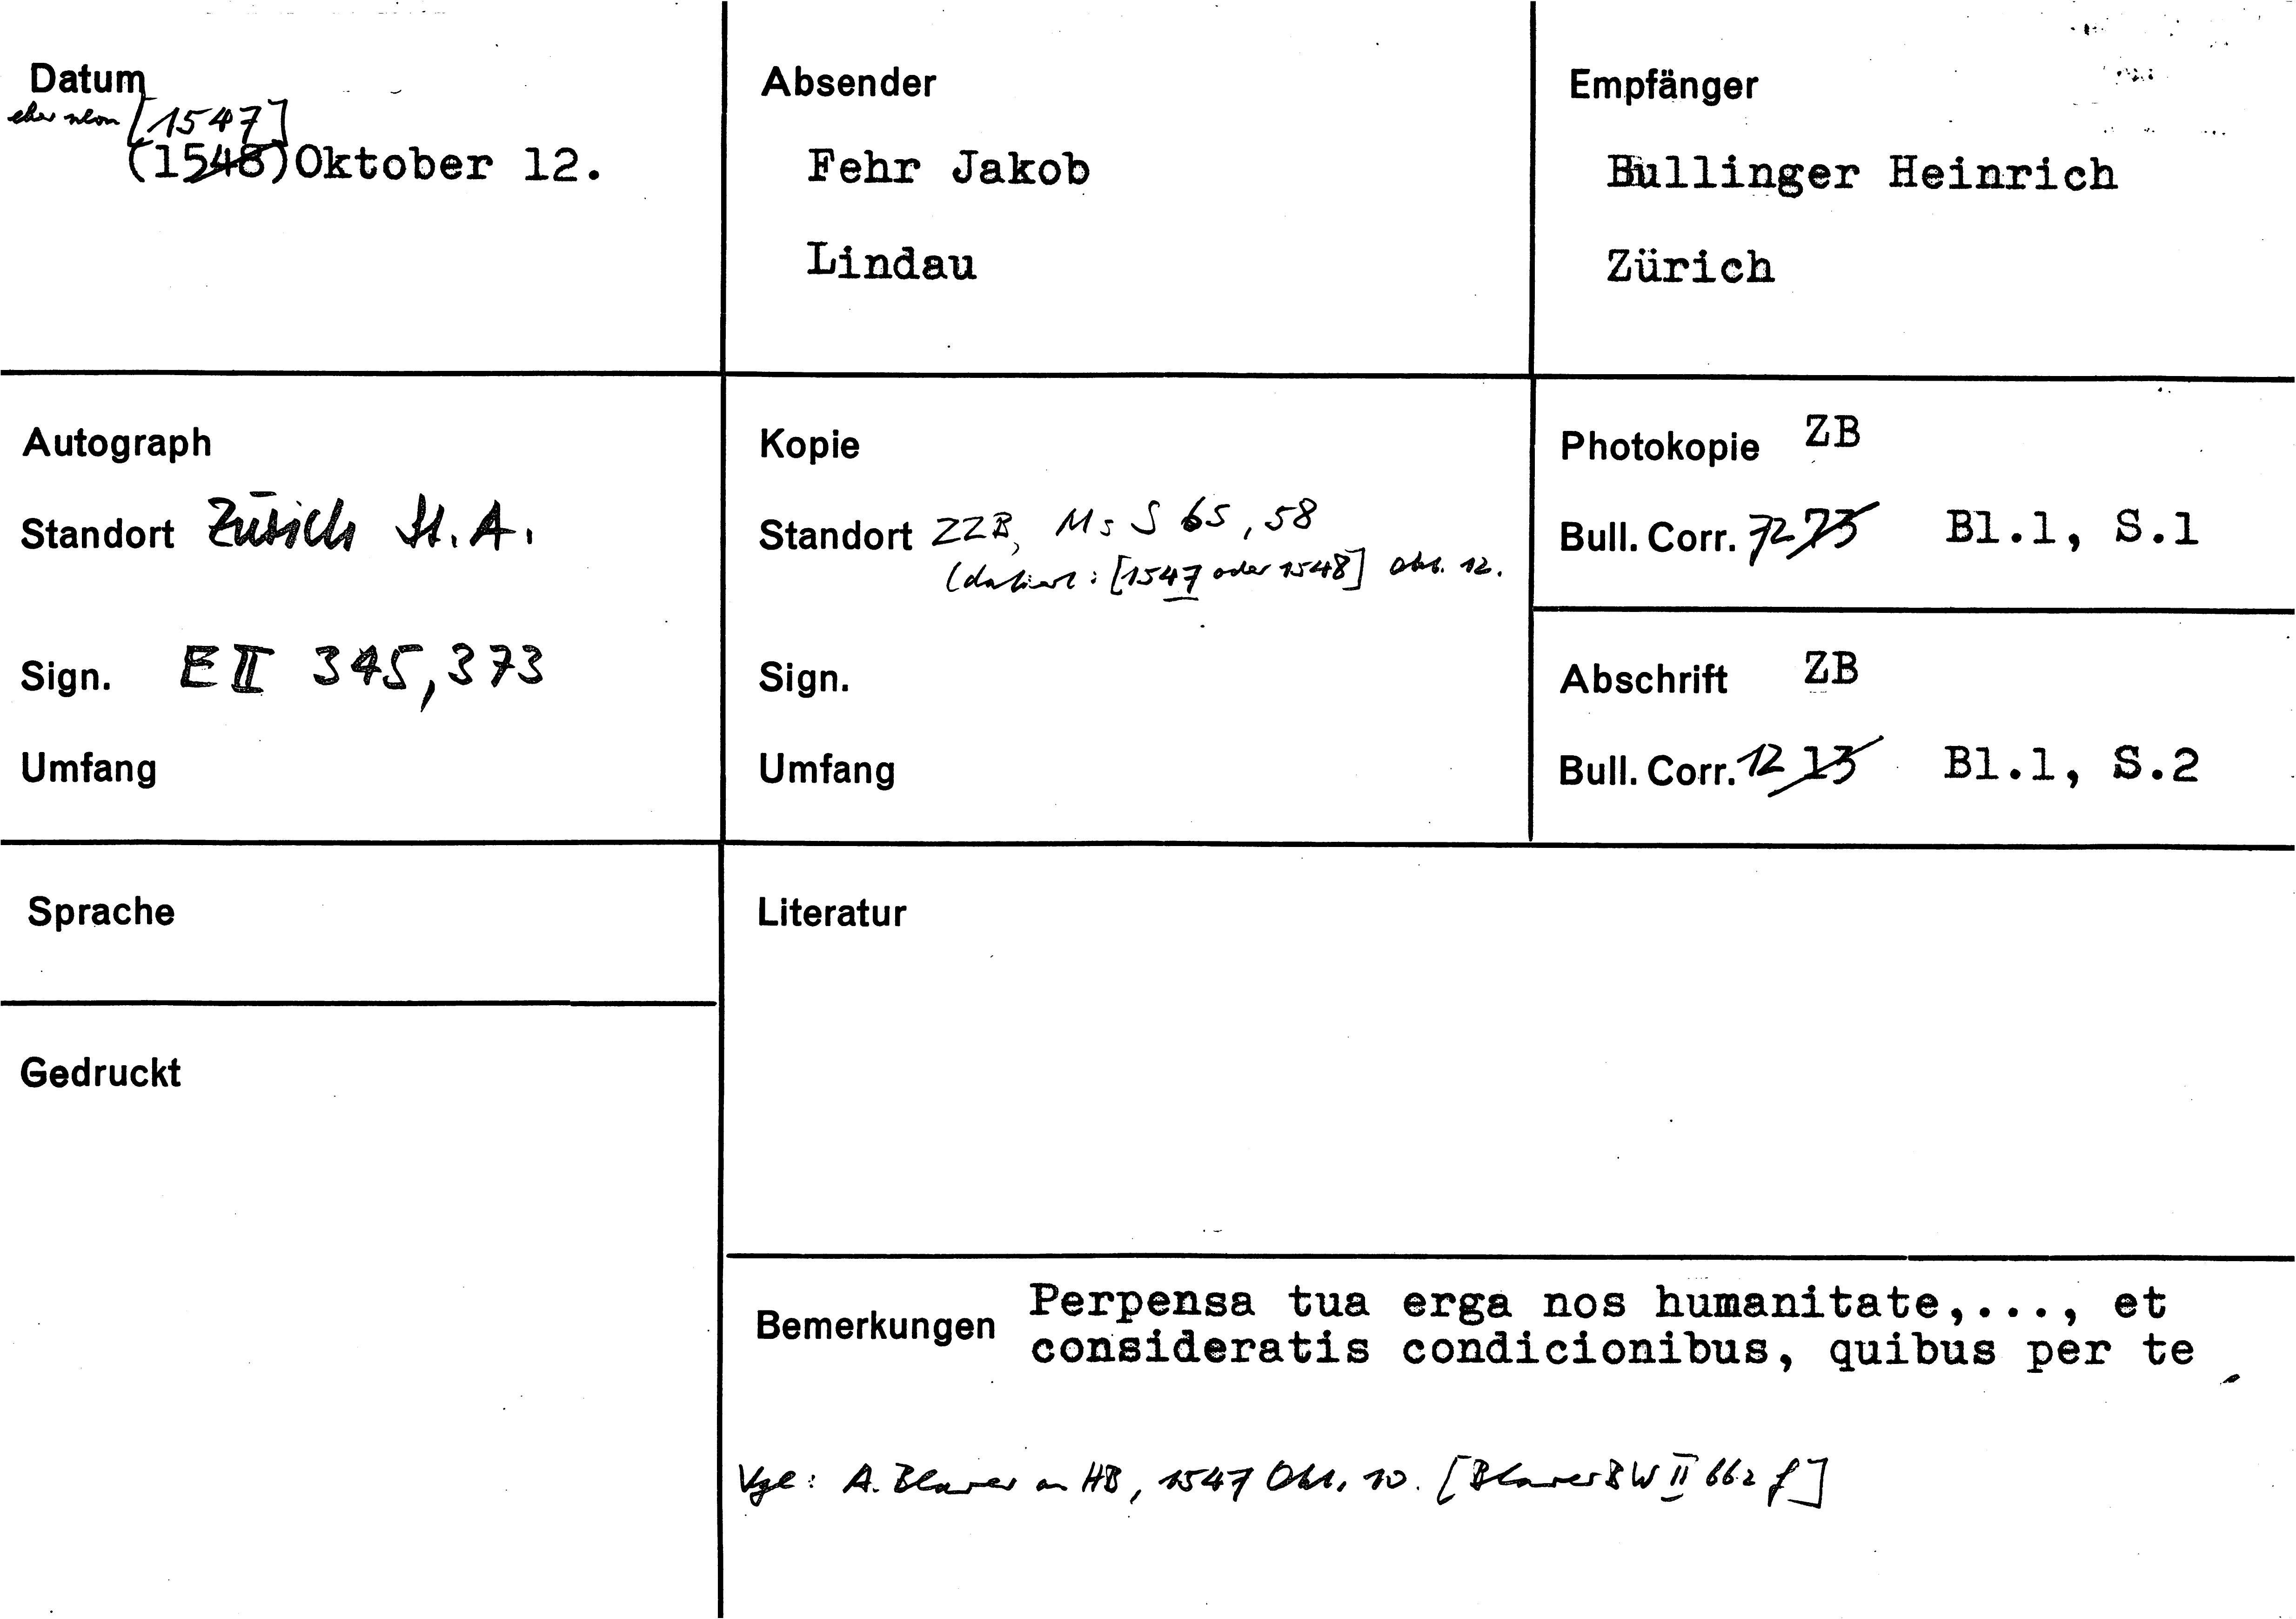 Datum
eher schon [1547]
(1548) Oktober 12.
Absender
Fehr Jakob
Lindau
Empfänger
Bullinger Heinrich
Zürich
Autograph
Standort Zürich St. A.
Sign. E II 345, 373
Umfang
Kopie
Standort ZZB, Ms S 65, 58
(datiert: [1547 oder 1548] Okt. 12.
Sign.
Umfang
Photokopie ZB
Bull. Corr. 72 73 Bl.1, S.1
Abschrift ZB
Bull. Corr. 12 13 Bl.1, S.2
Sprache
Gedruckt
Literatur
Bemerkungen
Perpensa tua erga nos humanitate,..., et
consideratis condicionibus, quibus per te
Vgl: A. Blarer an HB, 1547 Okt. 10. [Blarer BW II 662 f]